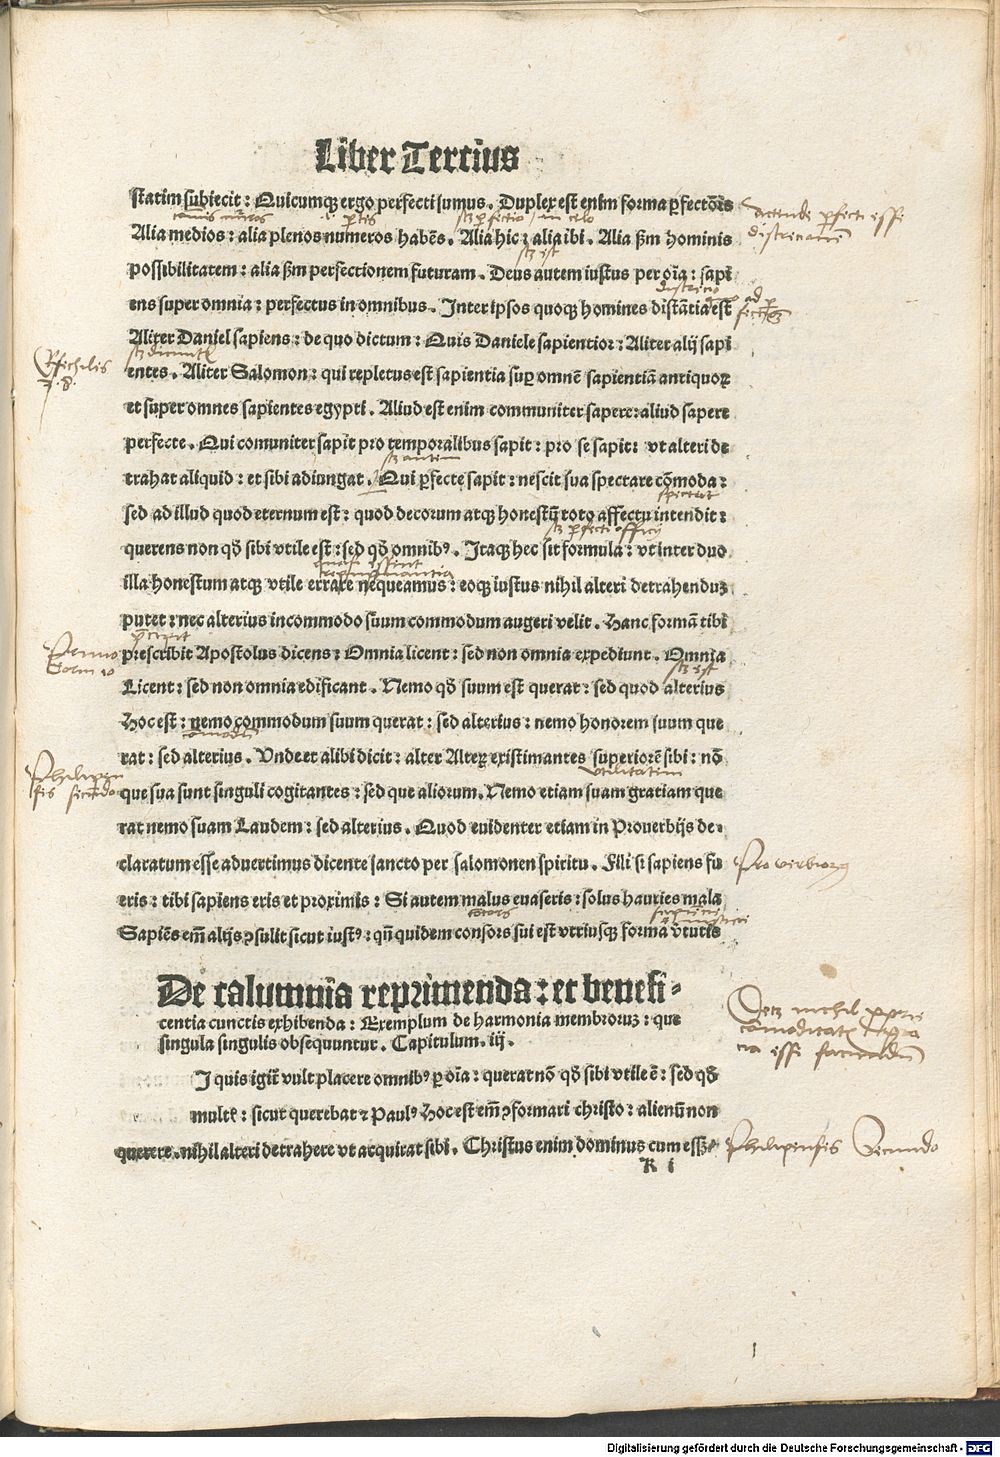 Liber Tercius
statim subiecit : Quicumqꝫ ergo perfecti sumus . Duplex est enim forma ꝑfectōis
Alia medios : alia plenos numeros habēs . Alia hic : alia ibi . Alia ẜm hominis
possibilitatem : alia ẜm perfectionem futuram . Deus autem iustus per oīa : sapi
ens super omnia : perfectus in omnibus . Inter ipsos quoqꝫ homines distātia est
Aliter Daniel sapiens : de quo dictum : Quis Daniele sapientior : Aliter alij sapi
entes . Aliter Salomon : qui repletus est sapientia suꝑ omnē sapientiā antiquoꝝ
et super omnes sapientes egypti . Aliud est enim communiter sapere : aliud sapere
perfecte . Qui comuniter sapit pro temporalibus sapit : pro se sapit : vt alteri de
trahat aliquid : et sibi adiungat . Qui ꝑfecte sapit : nescit sua spectare cōmoda :
sed ad illud quod eternum est : quod decorum atqꝫ honestū toto affectu intendit :
querens non qḋ sibi vtile est : sed qḋ omnibꝰ . Itaqꝫ hec sit formula : vt inter duo
illa honestum atqꝫ vtile errare nequeamus : eoqꝫ iustus nihil alteri detrahenduꝫ
putet : nec alterius incommodo suum commodum augeri velit . Hanc formā tibi
prescribit Apostolus dicens : Omnia licent : sed non omnia expediunt . Omnia
Licent : sed non omnia edificant . Nemo qḋ suum est querat : sed quod alterius
Hoc est : nemo commodum suum querat : sed alterius : nemo honorem suum que
rat : sed alterius . Vnde et alibi dicit : alter Alterꝝ existimantes superiorē sibi : nō
que sua sunt singuli cogitantes : sed que aliorum . Nemo etiam suam gratiam que
rat nemo suam Laudem : sed alterius . Quod euidenter etiam in Prouerbijs de-
claratum esse aduertimus dicente sancto per salomonen spiritu . Fili si sapiens fu
eris : tibi sapiens eris et proximis : Si autem malus euaseris : solus hauries mala
Sapiēs em̄ alijs ꝯsulit sicut iustꝰ : qn̄ quidem consors sui est vtriusqꝫ forma v̄tutis
De calumnia reprimenda : et benefi-
centia cunctis exhibenda : Exemplum de harmonia membroruꝫ : que
singula singulis obsequuntur . Capitulum . iij .
I quis igit̄ vult placere omnibꝰ ꝑ oīa : querat nō qḋ sibi vtile ē : sed qḋ
multꝭ : sicut querebat ⁊ Paulꝰ Hoc est em̄ ꝯformari christo : alienū non
querere . nihil alteri detrahere vt acquirat sibi . Christus enim dominus cum esset
Philipensis Secundo
K i
Digitalisierung gefördert durch die Deutsche Forschungsgemeinschaft - DFG